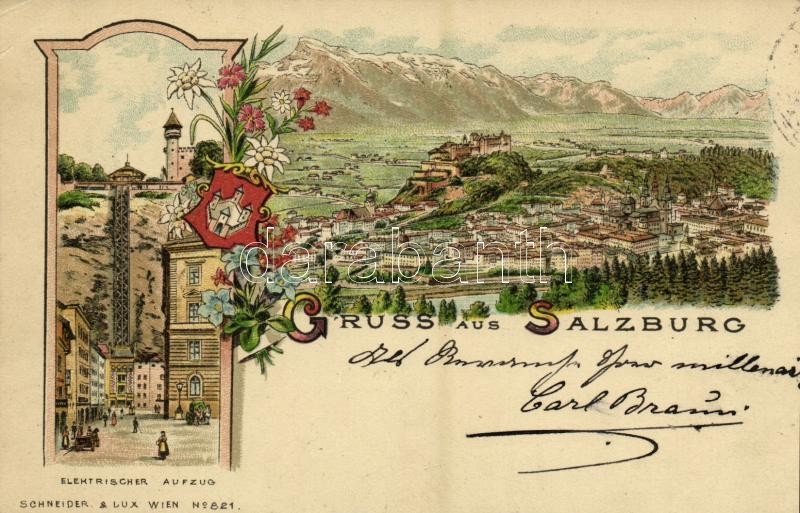 GRUSS AUS SALZBURG
Als Revanch
Carl Braun
ELEKTRISCHER AUFZUG
SCHNEIDER & LUX WIEN No 821.
darabanth